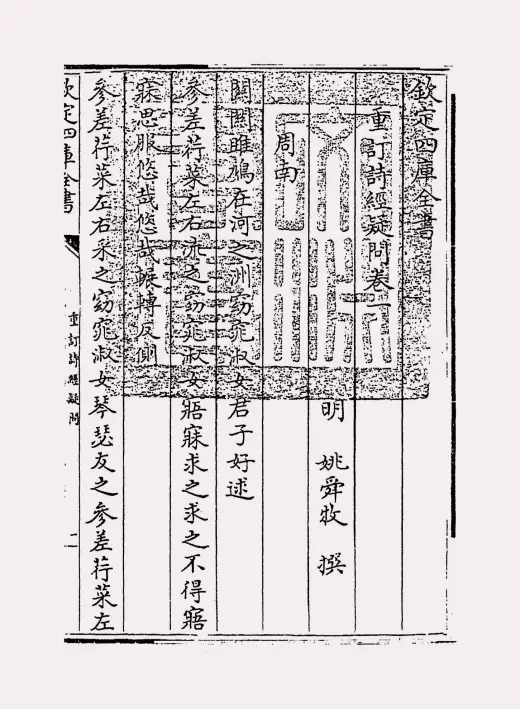 欽定四庫全書
重訂詩經疑問卷一
明 姚舜牧 撰
周南
關關雎鳩在河之洲窈窕淑女君子好逑
參差荇菜左右流之窈窕淑女寤寐求之求之不得寤
寐思服悠哉悠哉輾轉反側
參差荇菜左右采之窈窕淑女琴瑟友之參差荇菜左
欽定四庫全書
重訂詩經疑問
二